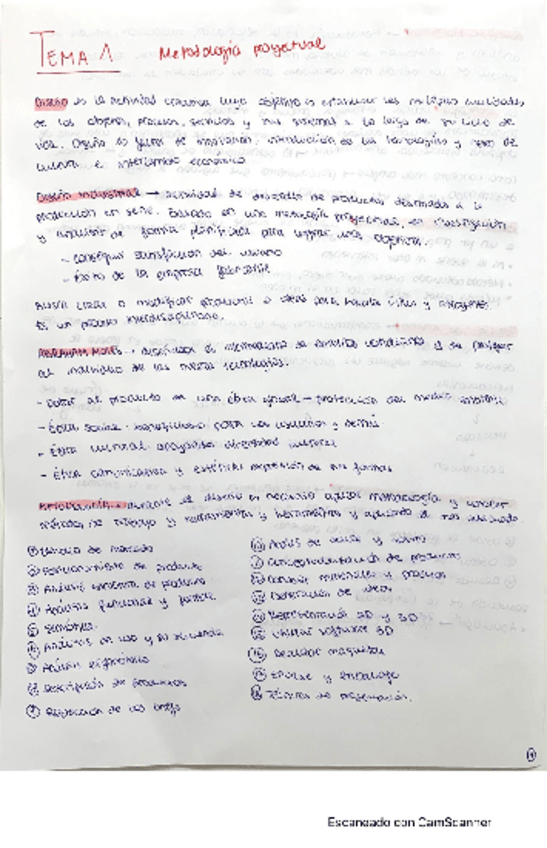 TEMA 1 Metodología proyectual
Diseño es la actividad creativa cuyo objetivo es establecer las múltiples cualidades
de los objetos, procesos, servicios y sus sistemas a lo largo de su ciclo de
vida. Diseño es factor de innovación, introducción de las tecnologías y
cultural e intercambio económico
Diseño industrial → actividad de desarrollo de productos destinada a la
producción en serie. Basado en una metodología proyectual, en investigación
y de forma planificada para lograr unos objetivos.
- conseguir satisfacción del usuario
- éxito de la empresa fabricante
crear o modificar productos o ideas para hacerla útiles y
Es un proceso interdisciplinario.
Abraham Moles → diseñador es y su proteger
al individuo de las nuevas tecnologías.
- Dotar al producto de una ética global - protección del medio ambiente
- Ética social - para los usuarios y demás.
- Ética cultural - diversidad cultural
- Ética comunicativa y estética expresión de sus formas
Metodología → de diseño es necesario aplicar metodología y conocer
métodos de trabajo y herramientas y y aplicando el más adecuado
① de mercado
② Posicionamiento de producto
③ Análisis de producto
④ Análisis funcional y
⑤
⑥ Análisis en uso y su
⑦ Análisis ergonómico
⑧ Descripción de productos
⑨ Redacción de un brief
⑩ Análisis de y
⑪ Conceptualización de productos
⑫ materiales y procesos
⑬ Generación de ideas
⑭ Representación 2D y 3D
⑮ Utilizar software 3D
⑯ Realizar maquetas
⑰ Envase y embalaje
⑱ Técnicas de presentación.
①
Escaneado con CamScanner